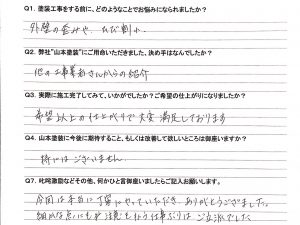 Q1. 塗装工事をする前に、どのようなことでお悩みになられましたか？
外壁の歪みや、ひび割れ
Q2. 弊社"山本塗装"にご用命いただきました、決め手はなんでしたか？
他の工事業者さんからの紹介
Q3. 実際に施工完了してみて、いかがでしたか？ご希望の仕上がりになりましたか？
希望以上の仕上がりで大変満足しております
Q4. 山本塗装に今後に期待すること、もしくは改善して欲しいところは御座いますか？
特にはございません
Q7. 叱咤激励などその他、何かひと言御座いましたらご記入お願いします。
今回は本当に丁寧にやっていただき、ありがとうございました。
細かな点にも注意を払う仕事ぶりはご立派でした